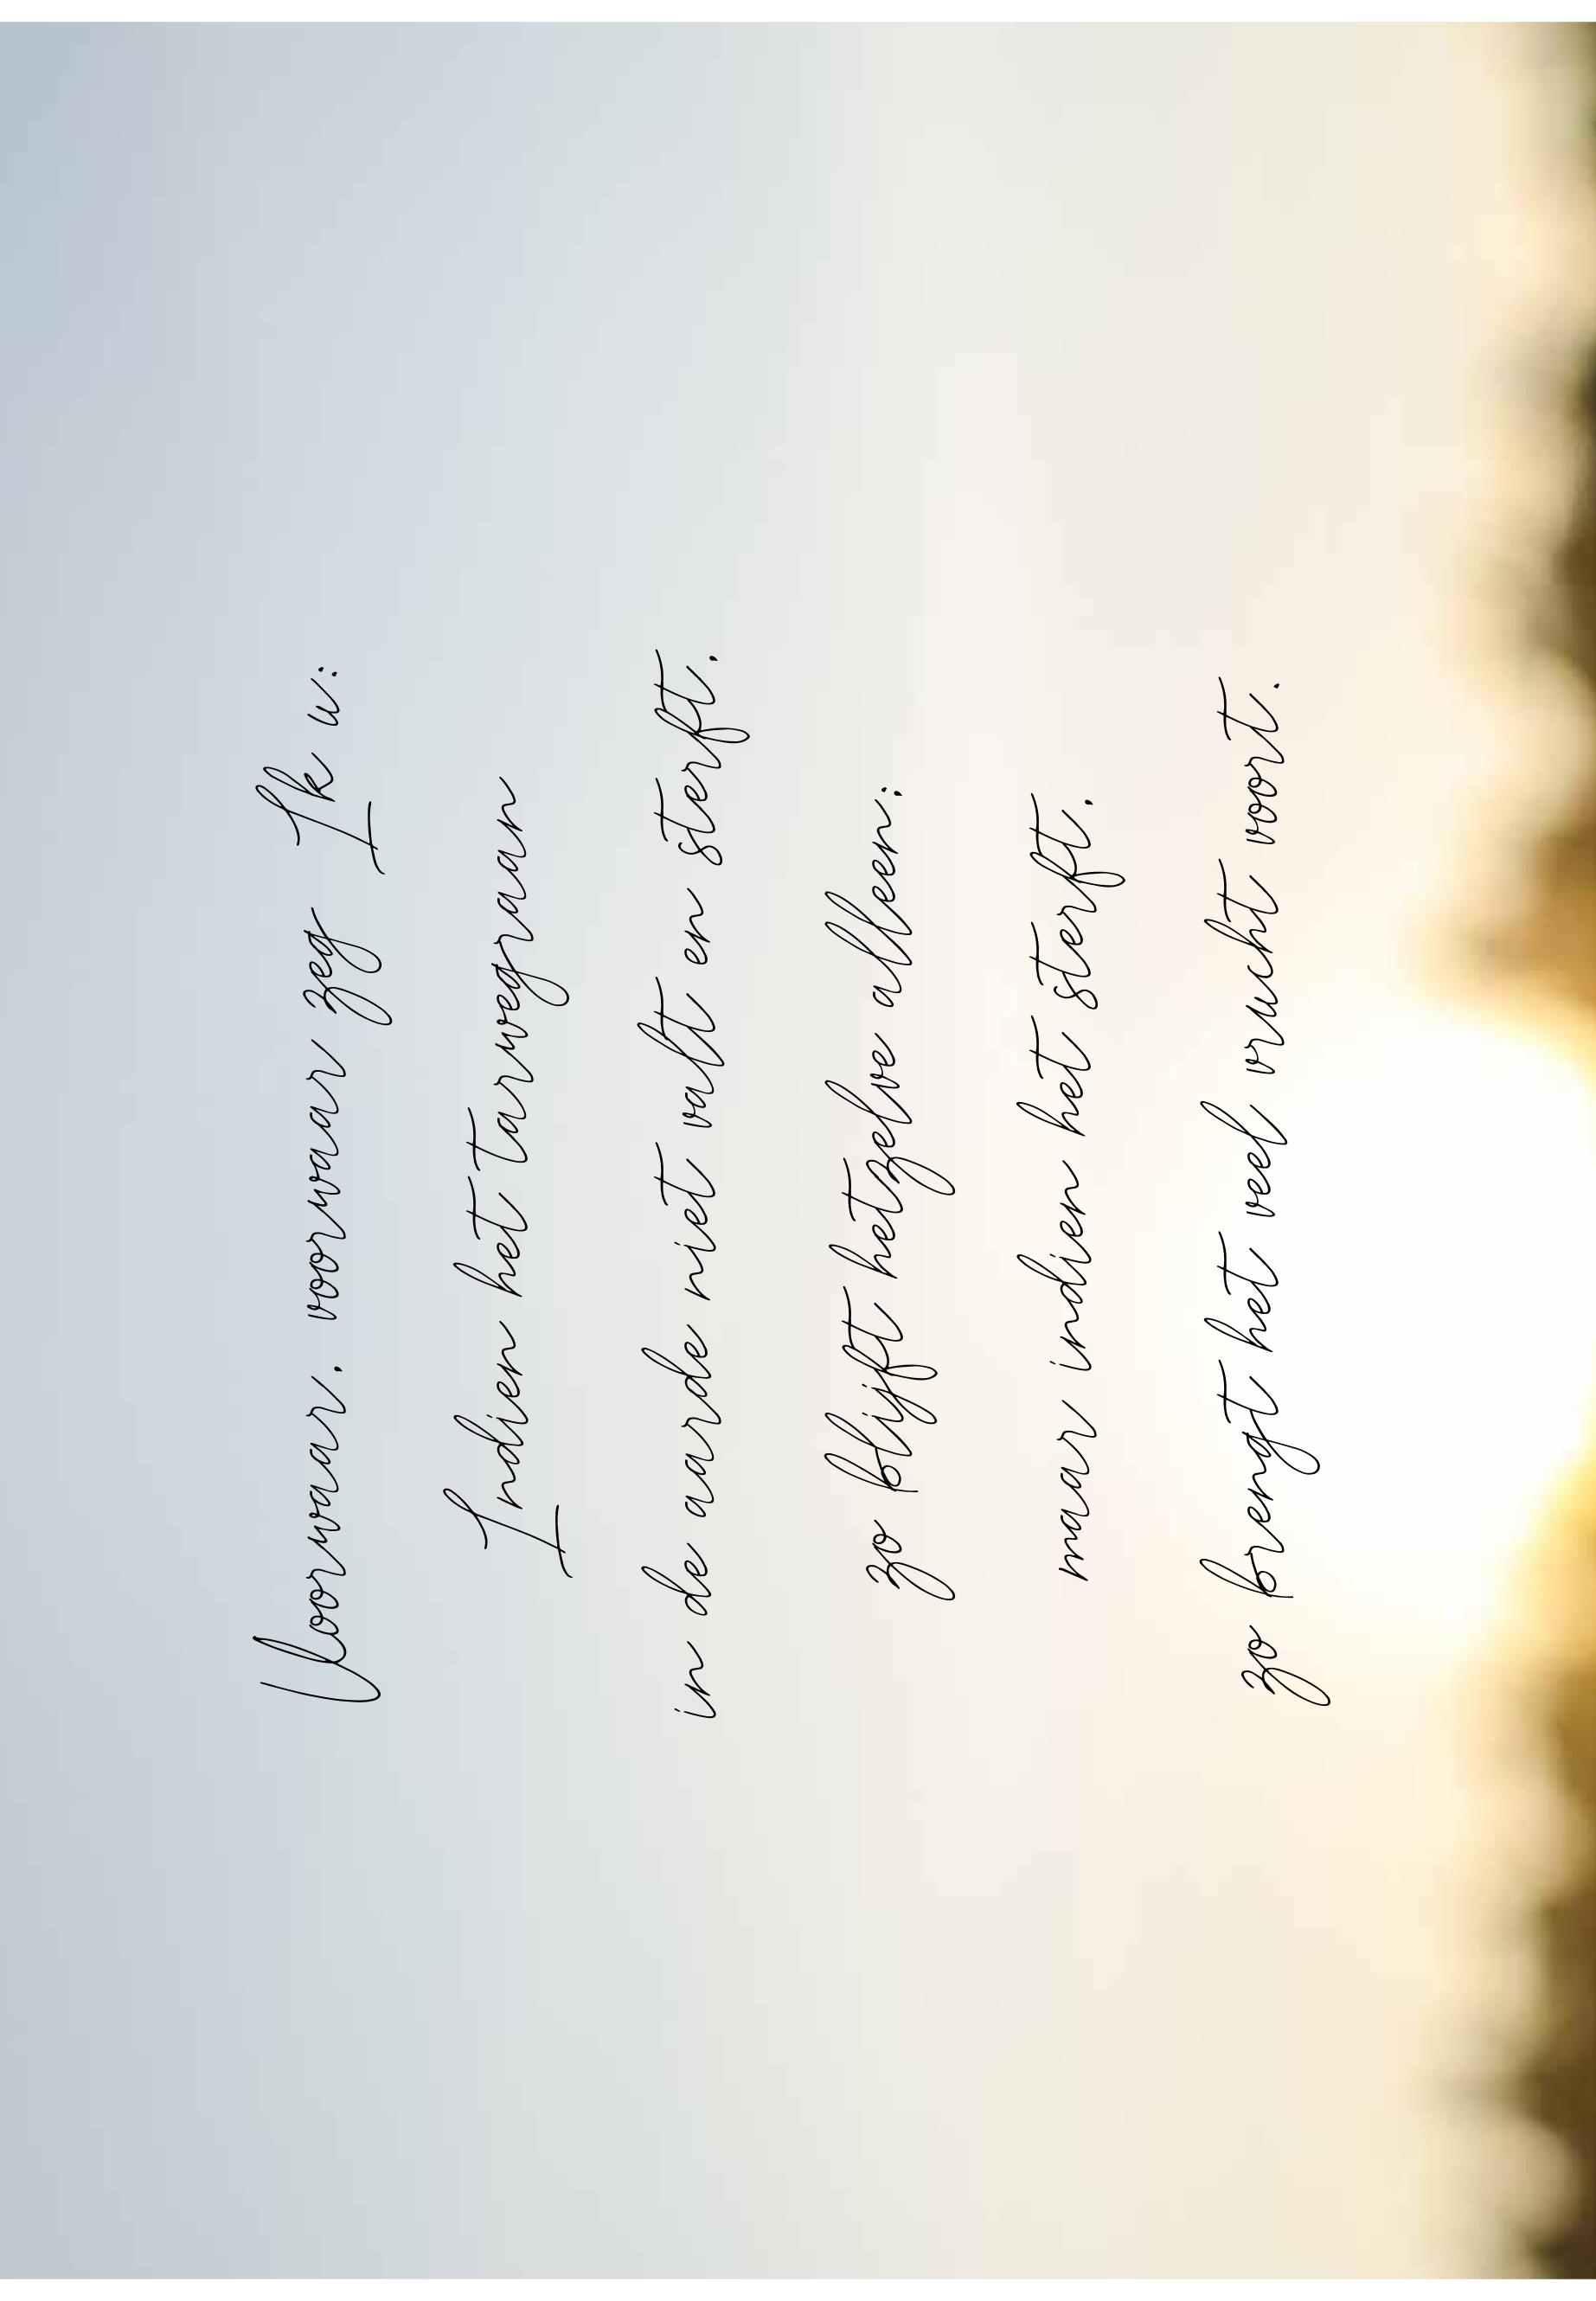 Voorwaar. voorwaar zeg Ik u:
Indien het tarwegraan
in de aarde niet valt en sterft.
zo blijft hetzelve alleen:
maar indien het sterft.
zo brengt het veel vrucht voort.